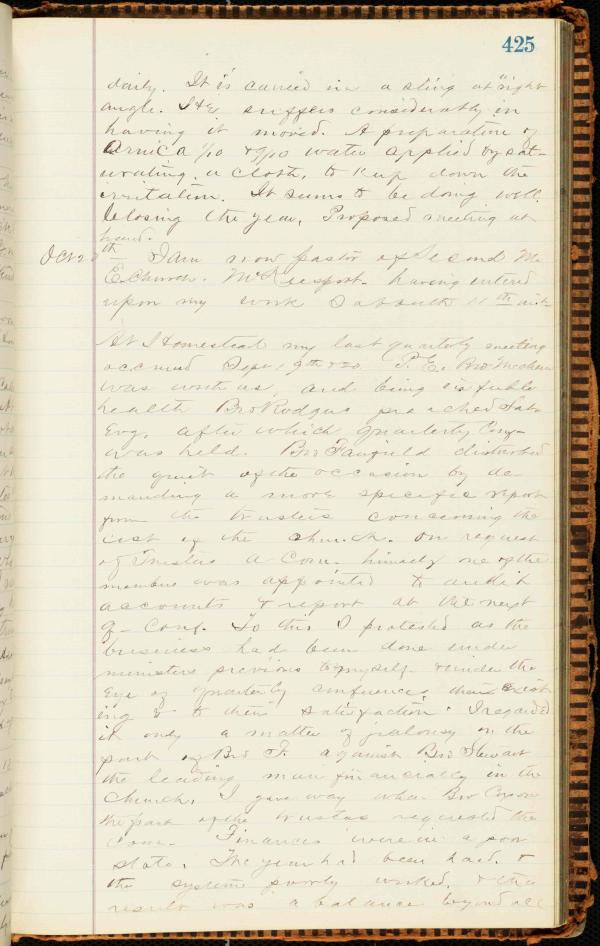 425
daily. It is carried in a sling at "right
angle. I & E suffers considerably in
having it moved. A preparation of
Arnica 1/10 & 9/10 water applied by sat-
urating, a cloth, to keep down the
irritation. It seems to be doing well.
Closing the year, Proposed meeting at
hand.
Oct 2 th I am now pastor of Second M.
E. Church. McKeesport. having entered
upon my work Sabbath 11th inst.
At Homestead my last quarterly meeting
occurred Sept. 19th & 20. P. E. Bro
was with us, and being in feeble
health Bro Rodgers preached Sab.
Evg, after which quarterly Conf-
was held. Bro Fairfield disturbed
the quiet of the occasion by de
manding a more specific report
from the trustees concerning the
cost of the church. On request
of Trustees a Com. himself one of the
members was appointed to audit
accounts & report at the next
q- Conf. To this I protested as the
business had been done under
ministers previous to myself- & under the
eye of quarterly conferences then exist
ing & to their satisfaction. I regarded
it only a matter of jealousy on the
part of Bro F. against Bro Stewart
the leading man financially in the
Church, I gave way when Bro
the part of the trustees requested the
Com. Finances were in a poor
state. The year had been hard, &
the system poorly worked, & the
result was a balance beyond all